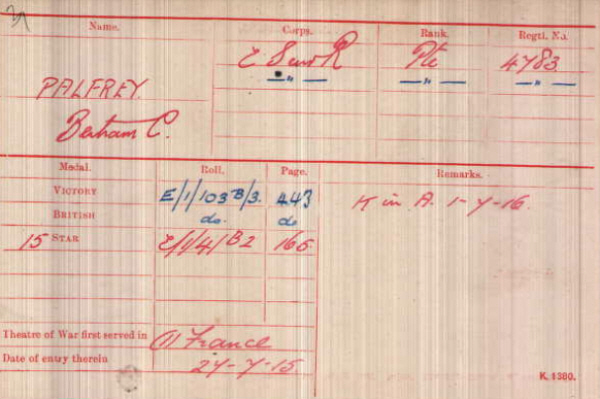 Name. Corps. Rank. Regtl. No.
E Surr R Pte 4783
PALFREY. —"— —"— —"—
Bertram C.
Medal. Roll. Page. Remarks.
VICTORY E/1/103 B/3. 443 K in A. 1-7-16.
BRITISH do. do
15 STAR E/1/4/B2 166
Theatre of War first served in (1) France
Date of entry therein 27-7-15
K. 1380.